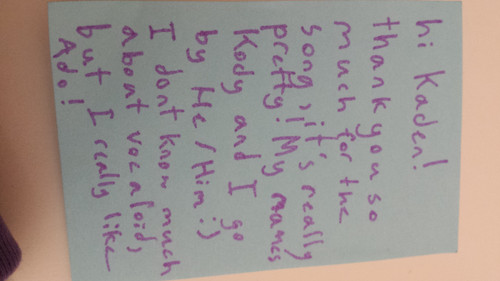 hi Kaden!
thank you so
much for the
song, it's really
pretty! My names
Kody and I go
by He/Him :)
I dont know much
about vocaloid,
but I really like
Ado!